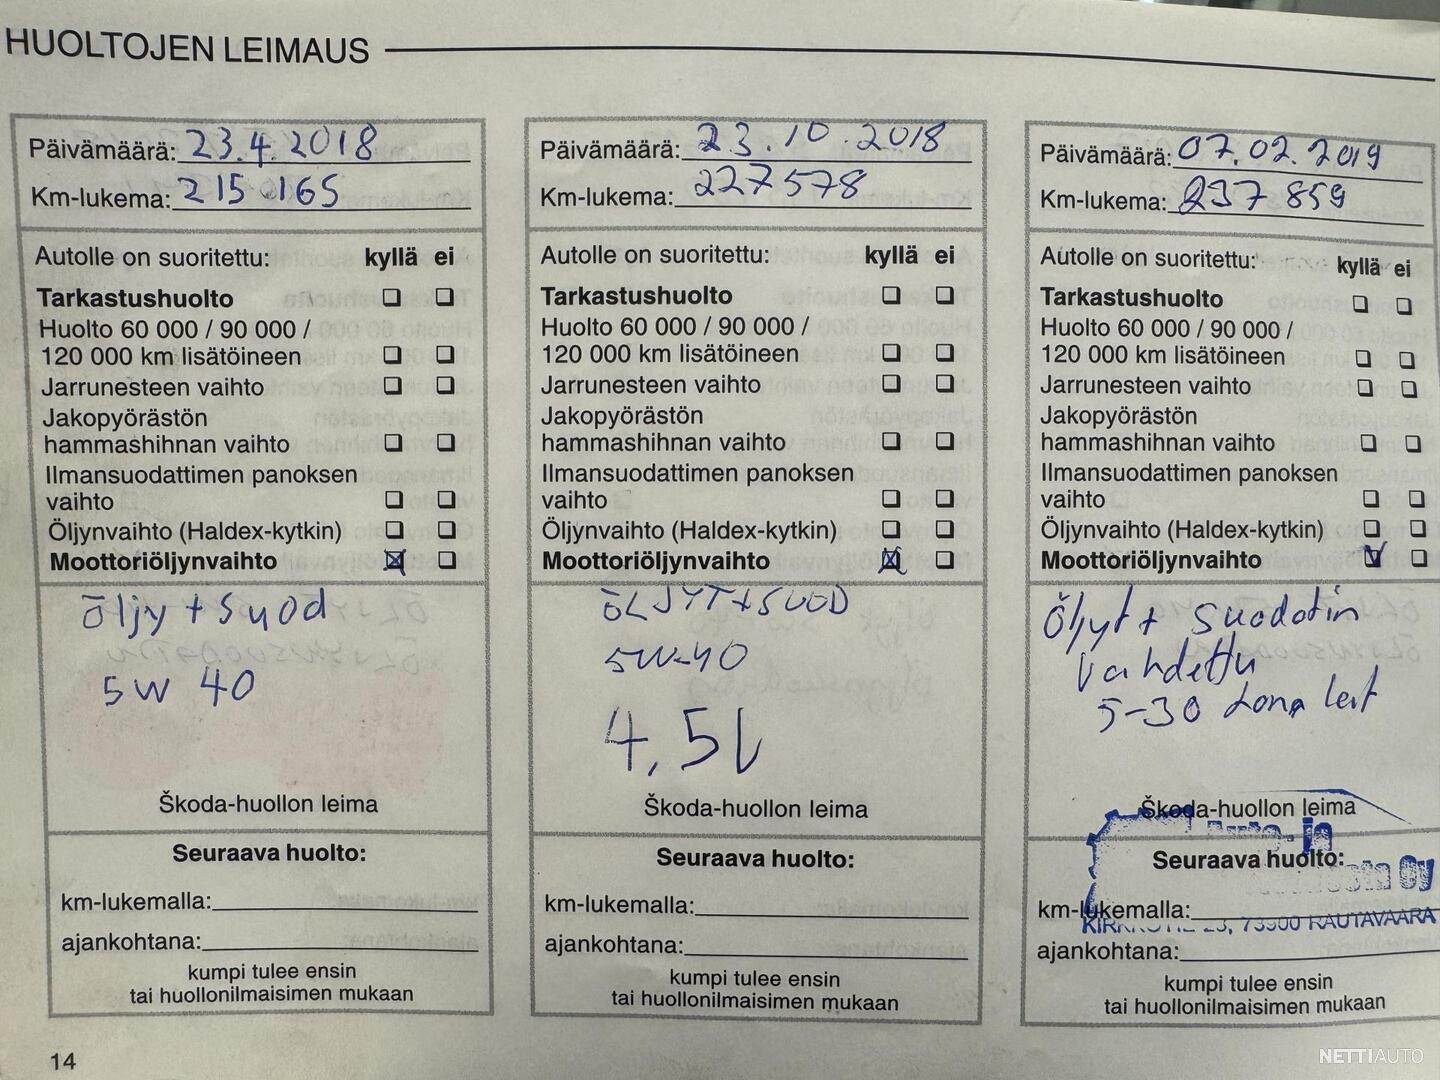 HUOLTOJEN LEIMAUS
Päivämäärä: 23.4.2018
Km-lukema: 215.165
Autolle on suoritettu: kyllä ei
Tarkastushuolto
Huolto 60 000 / 90 000 /
120 000 km lisätöineen
Jarrunesteen vaihto
Jakopyörästön
hammashihnan vaihto
Ilmansuodattimen panoksen
vaihto
Öljynvaihto (Haldex-kytkin)
Moottoriöljynvaihto
öljy + suod
5W 40
Škoda-huollon leima
Seuraava huolto:
km-lukemalla:
ajankohtana:
kumpi tulee ensin
tai huollonilmaisimen mukaan
Päivämäärä: 23.10.2018
Km-lukema: 227578
Autolle on suoritettu: kyllä ei
Tarkastushuolto
Huolto 60 000 / 90 000 /
120 000 km lisätöineen
Jarrunesteen vaihto
Jakopyörästön
hammashihnan vaihto
Ilmansuodattimen panoksen
vaihto
Öljynvaihto (Haldex-kytkin)
Moottoriöljynvaihto
ÖLJYT+SUOD
5W-40
4,5l
Škoda-huollon leima
Seuraava huolto:
km-lukemalla:
ajankohtana:
kumpi tulee ensin
tai huollonilmaisimen mukaan
Päivämäärä: 07.02.2019
Km-lukema: 237 859
Autolle on suoritettu: kyllä ei
Tarkastushuolto
Huolto 60 000 / 90 000 /
120 000 km lisätöineen
Jarrunesteen vaihto
Jakopyörästön
hammashihnan vaihto
Ilmansuodattimen panoksen
vaihto
Öljynvaihto (Haldex-kytkin)
Moottoriöljynvaihto
Öljyt + suodatin
Vaihdettu
5-30
Škoda-huollon leima
Auto- ja
Oy
Seuraava huolto:
km-lukemalla:
73900 RAUTAVAARA
ajankohtana:
kumpi tulee ensin
tai huollonilmaisimen mukaan
14
NETTIAUTO